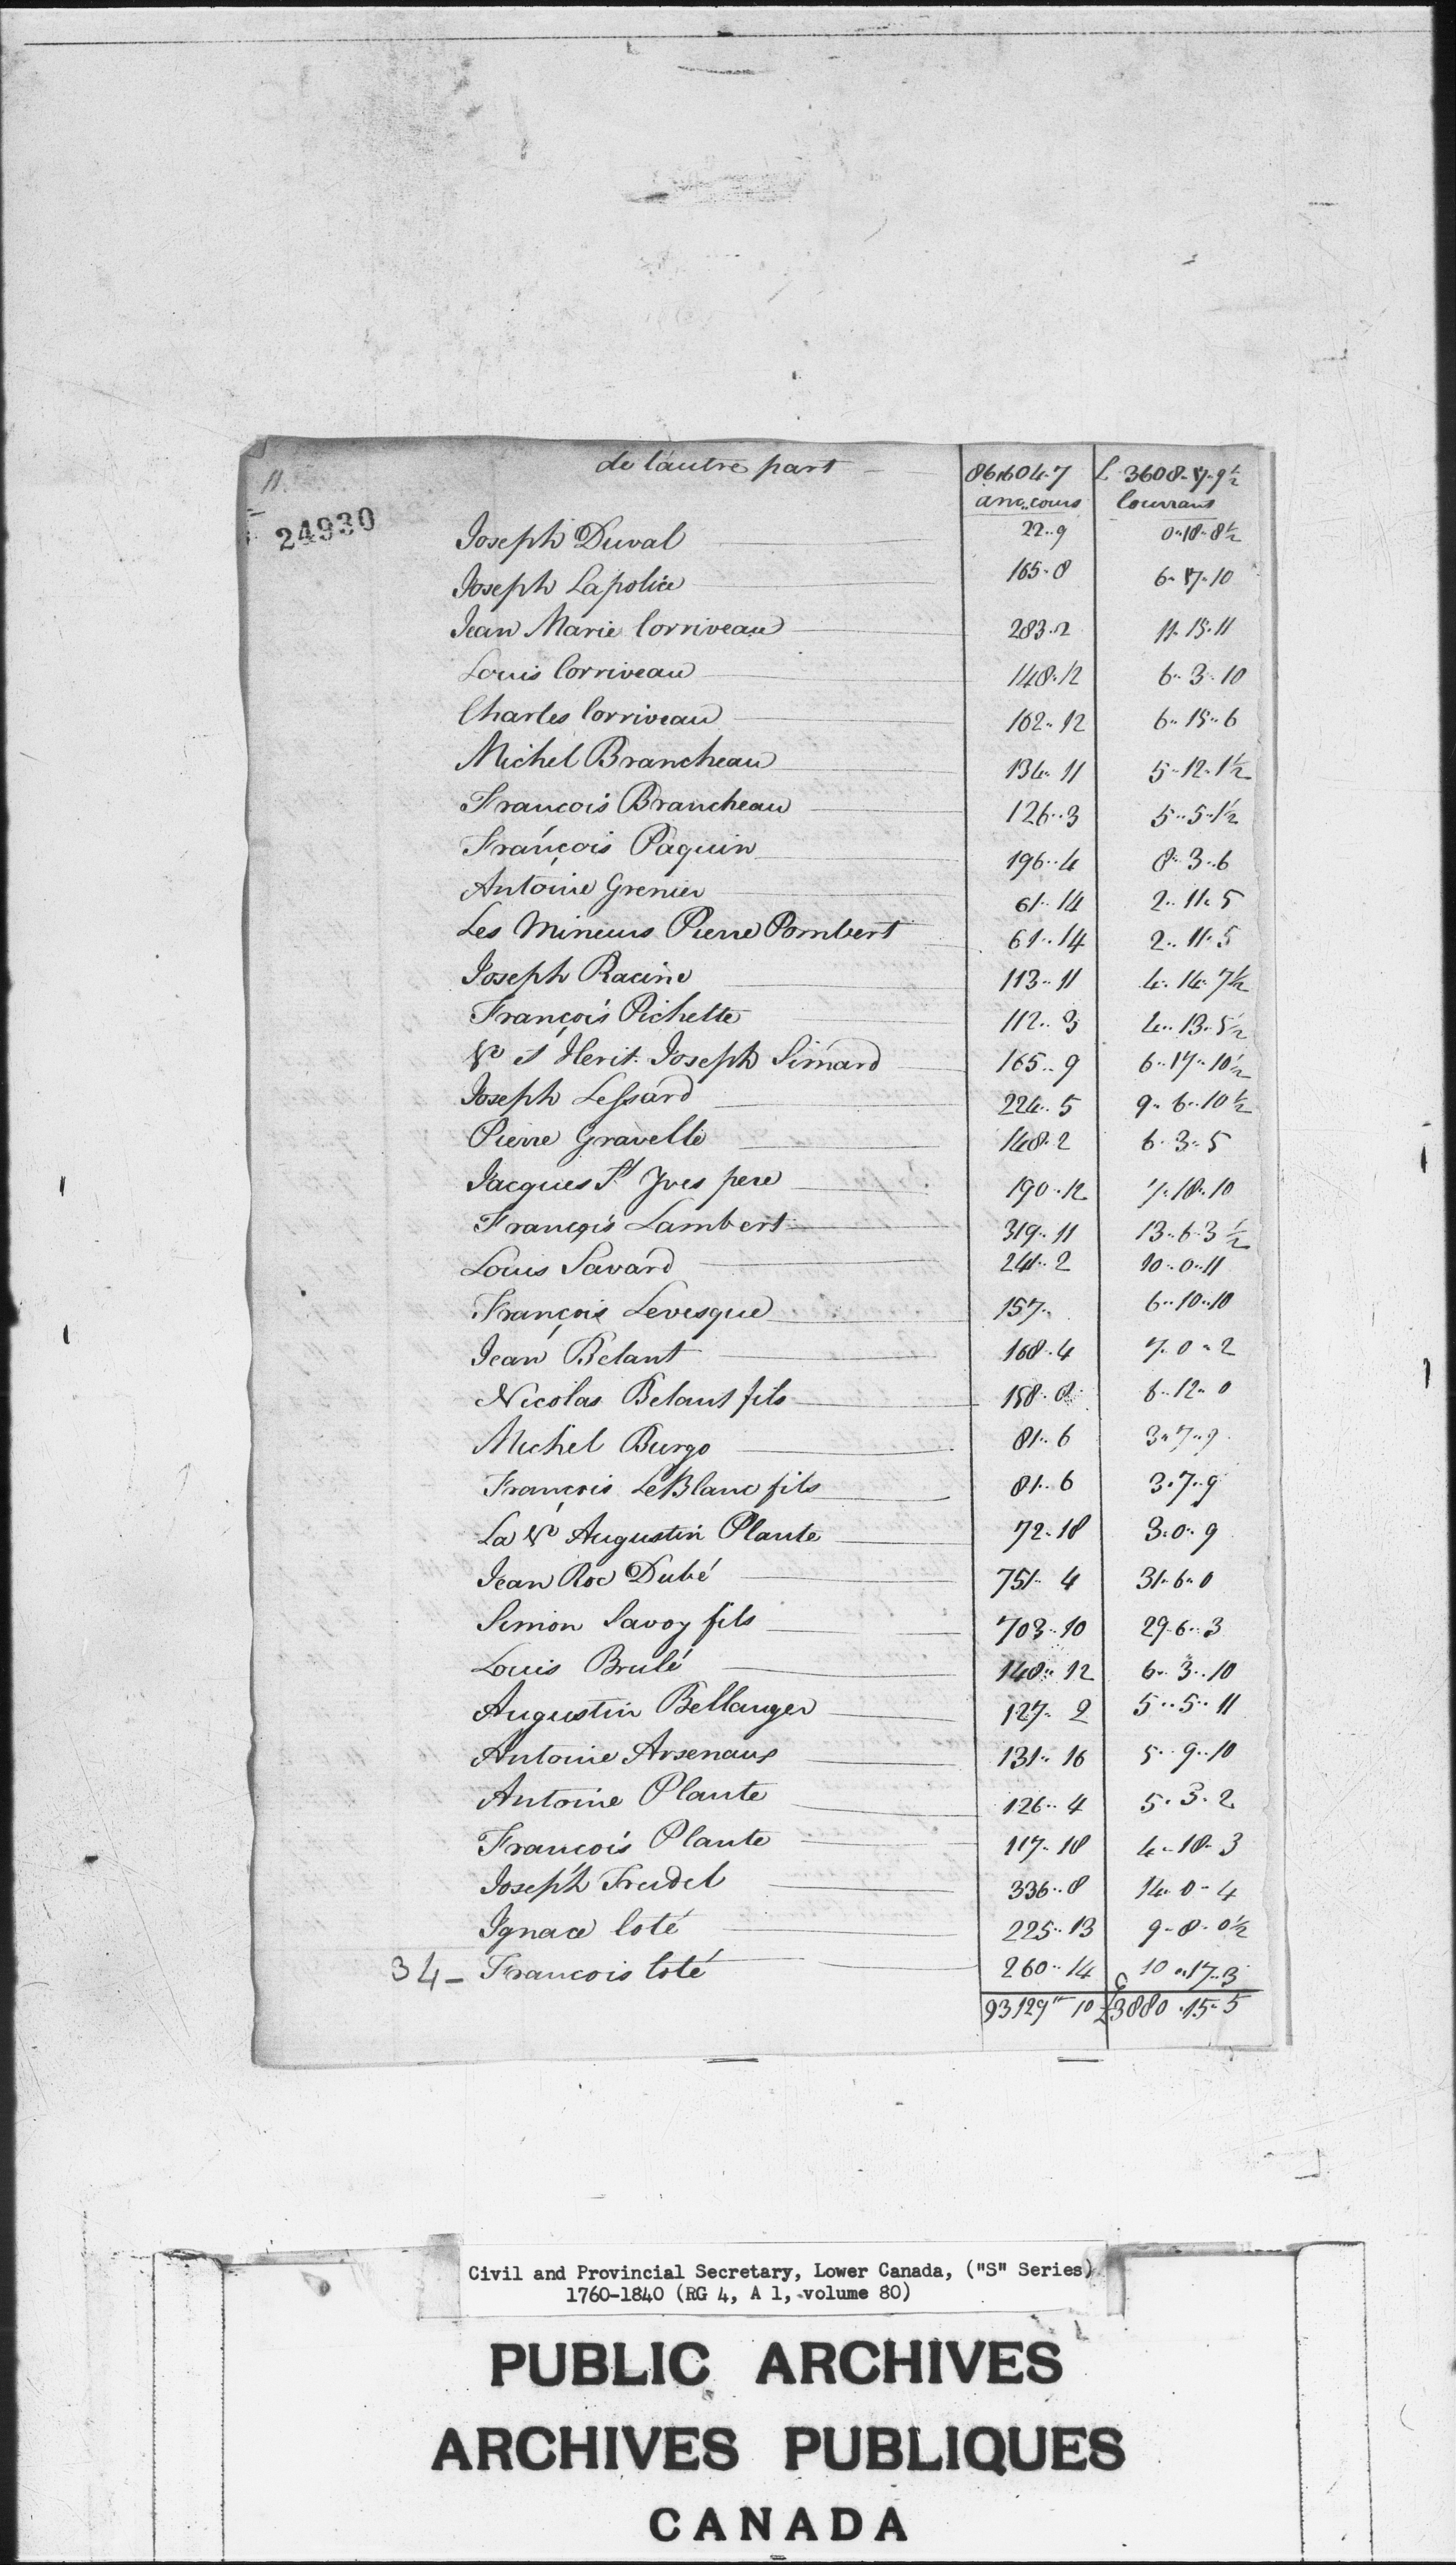 11.
24930
de l'autre part — 86,604.7 £ 3608.17.9½
anc. cours Courrant
Joseph Duval — 22..9 0..18..8½
Joseph Lapolice — 165..8 6..17..10
Jean Marie Corriveau — 283..2 11..15..11
Louis Corriveau — 148..12 6..3..10
Charles Corriveau — 162..12 6..15..6
Michel Brancheau — 134..11 5..12..1½
François Brancheau — 126..3 5..5..1½
François Paquin — 196..4 8..3..6
Antoine Grenier — 61..14 2..11..5
Les Mineurs Pierre Pombert 61..14 2..11..5
Joseph Racine — 113..11 4..14..7½
François Pichette — 112..3 4..13..5½
Ve et Herit. Joseph Simard — 165..9 6..17..10½
Joseph Lessard — 224..5 9..6..10½
Pierre Gravelle — 148..2 6..3..5
Jacques St Yves pere — 190..12 7..18..10
François Lambert — 319..11 13..6..3½
Louis Savard — 241..2 10..0..11
François Levesque — 157.. 6..10..10
Jean Belant — 168..4 7..0..2
Nicolas Belant fils — 158..8 6..12..0
Michel Burgo — 81..6 3..7..9
François LeBlanc fils — 81..6 3..7..9
La Ve Augustin Plante — 72..18 3..0..9
Jean Roc Dubé — 751..4 31..6..0
Simon Savoy fils — 703..10 29..6..3
Louis Brulé — 148..12 6..3..10
Augustin Bellanger — 127..2 5..5..11
Antoine Arsenaux — 131..16 5..9..10
Antoine Plante — 126..4 5..3..2
François Plante — 117..18 4..18..3
Joseph Treudel — 336..8 14..0..4
Ignace Coté — 225..13 9..8..0½
34 — Francois Coté — 260..14 10..17..3
93129"10 £3880..15..5
Civil and Provincial Secretary, Lower Canada, ("S" Series)
1760-1840 (RG 4, A 1, volume 80)
PUBLIC ARCHIVES
ARCHIVES PUBLIQUES
CANADA